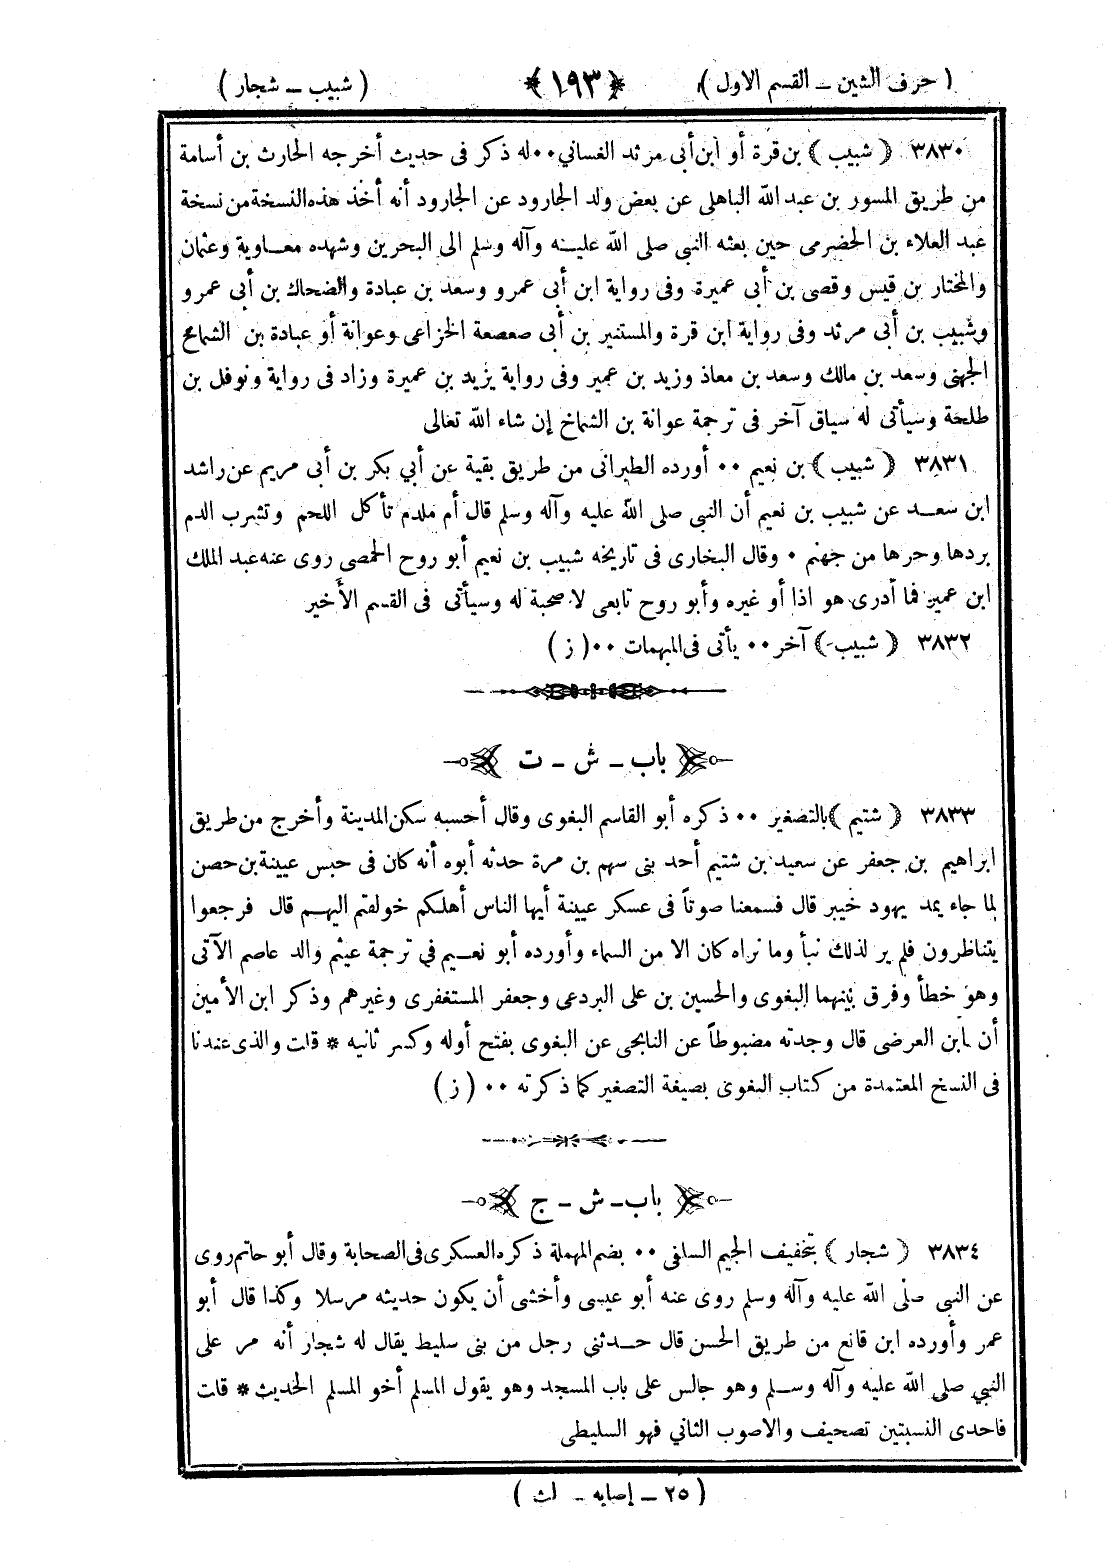 ( حرف الشين ــ القسم الاول ) ﴿١٩٣﴾ ( شبيب ــ شجار )
٣٨٣٠ ﴿ شبيب ﴾ بن قرة أو ابن أبى مرثد الغساني ٠٠ له ذكر فى حديث أخرجه الحارث بن أسامة
من طريق المسور بن عبد الله الباهلى عن بعض ولد الجارود عن الجارود أنه أخذ هذه النسخة من نسخة
عبد العلاء بن الحضرمى حين بعثه النبى صلى الله عليــه وآله وسلم الى البحرين وشهده معــاوية وعثمان
والمختار بن قيس وقصى بن أبى عميرة وفى رواية ابن أبى عمرو وسعد بن عبادة والضحاك بن أبى عمرو
وشبيب بن أبى مرثد وفى رواية ابن قرة والمستنير بن أبى صعصعة الخزاعى وعوانة أو عبادة بن الشماخ
الجهنى وسعد بن مالك وسعد بن معاذ وزيد بن عمير وفى رواية يزيد بن عميرة وزاد فى رواية ونوفل بن
طلحة وسيأتى له سياق آخر فى ترجمة عوانة بن الشماخ إن شاء الله تعالى
٣٨٣١ ﴿ شبيب ﴾ بن نعيم ٠٠ أورده الطبرانى من طريق بقية عن أبي بكر بن أبى مريم عن راشد
ابن سعــد عن شبيب بن نعيم أن النبى صلى الله عليه وآله وسلم قال أم ملدم تأكل اللحم وتشرب الدم
بردها وحرها من جهنم ٠ وقال البخارى فى تاريخه شبيب بن نعيم أبو روح الحمصى روى عنه عبد الملك
ابن عمير فما أدرى هو اذا أو غيره وأبو روح تابعى لا صحبة له وسيأتى فى القسم الأخير
٣٨٣٢ ﴿ شبيب ﴾ آخر ٠٠ يأتى فى المبهمات ٠٠ ( ز )
باب ــ ش ــ ت
٣٨٣٣ ﴿ شتيم ﴾ بالتصغير ٠٠ ذكره أبو القاسم البغوى وقال أحسبه سكن المدينة وأخرج من طريق
ابراهيم بن جعفر عن سعيد بن شتيم أحد بنى سهم بن مرة حدثه أبوه أنه كان فى حبس عيينة بن حصن
لما جاء يمد يهود خيبر قال فسمعنا صوتاً فى عسكر عيينة أيها الناس أهلكم خولفتم اليهــم قال فرجعوا
يتناظرون فلم ير لذلك نبأ وما نراه كان الا من السماء وأورده أبو نعــيم في ترجمة عيثم والد عاصم الآتى
وهو خطأ وفرق بينهما البغوى والحسين بن على البردعى وجعفر المستغفرى وغيرهم وذكر ابن الأمين
أن ابن العرضى قال وجدته مضبوطاً عن النابجى عن البغوى بفتح أوله وكسر ثانيه * قلت والذى عندنا
فى النسخ المعتمدة من كتاب البغوى بصيغة التصغير كما ذكرته ٠٠ ( ز )
باب ــ ش ــ ج
٣٨٣٤ ﴿ شجار ﴾ بتخفيف الجيم السلفى ٠٠ بضم المهملة ذكره العسكرى فى الصحابة وقال أبو حاتم روى
عن النبى صلى الله عليه وآله وسلم روى عنه أبو عيسى وأخشى أن يكون حديثه مرسلا وكذا قال أبو
عمر وأورده ابن قانع من طريق الحسن قال حــدثني رجل من بنى سليط يقال له شجار أنه مر على
النبي صلى الله عليه وآله وســلم وهو جالس على باب المسجد وهو يقول المسلم أخو المسلم الحديث * قلت
فاحدى النسبتين تصحيف والاصوب الثاني فهو السليطى
( ٢٥ ــ إصابه ــ لث )